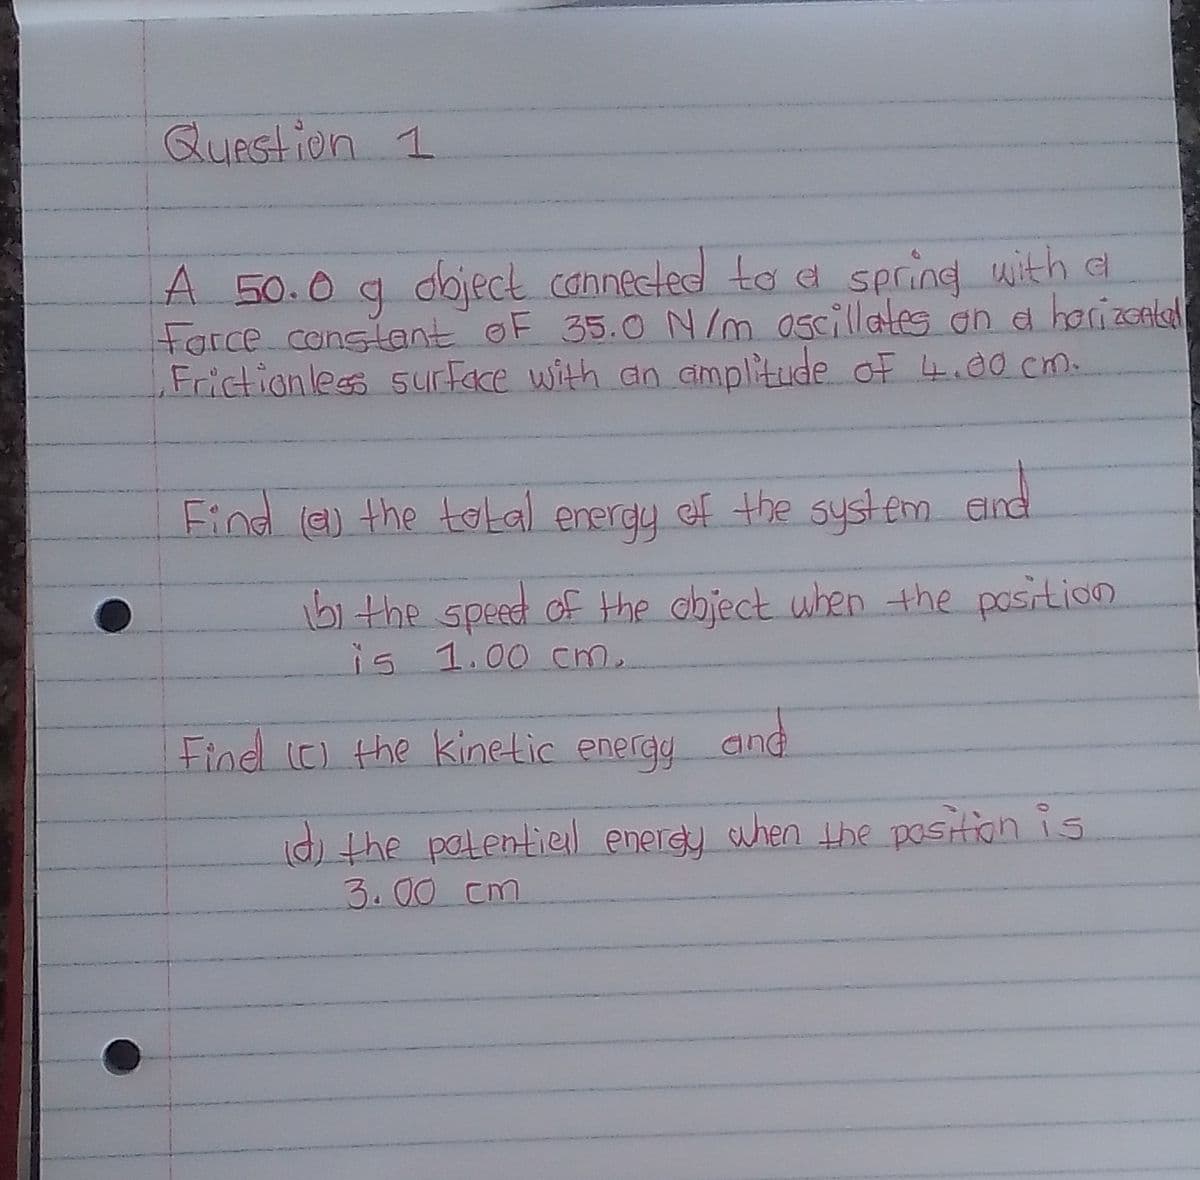 Question 1
A 50.0 g object connected to a spring with a
force constant of 35.0 N/m oscillates on a horizontal
Frictionless surface with an amplitude of 4.00 cm.
Find (a) the total energy of the system and
(b) the speed of the object when the position
is 1.00 cm.
Find (c) the kinetic energy and
(d) the potential energy when the position is
3.00 cm